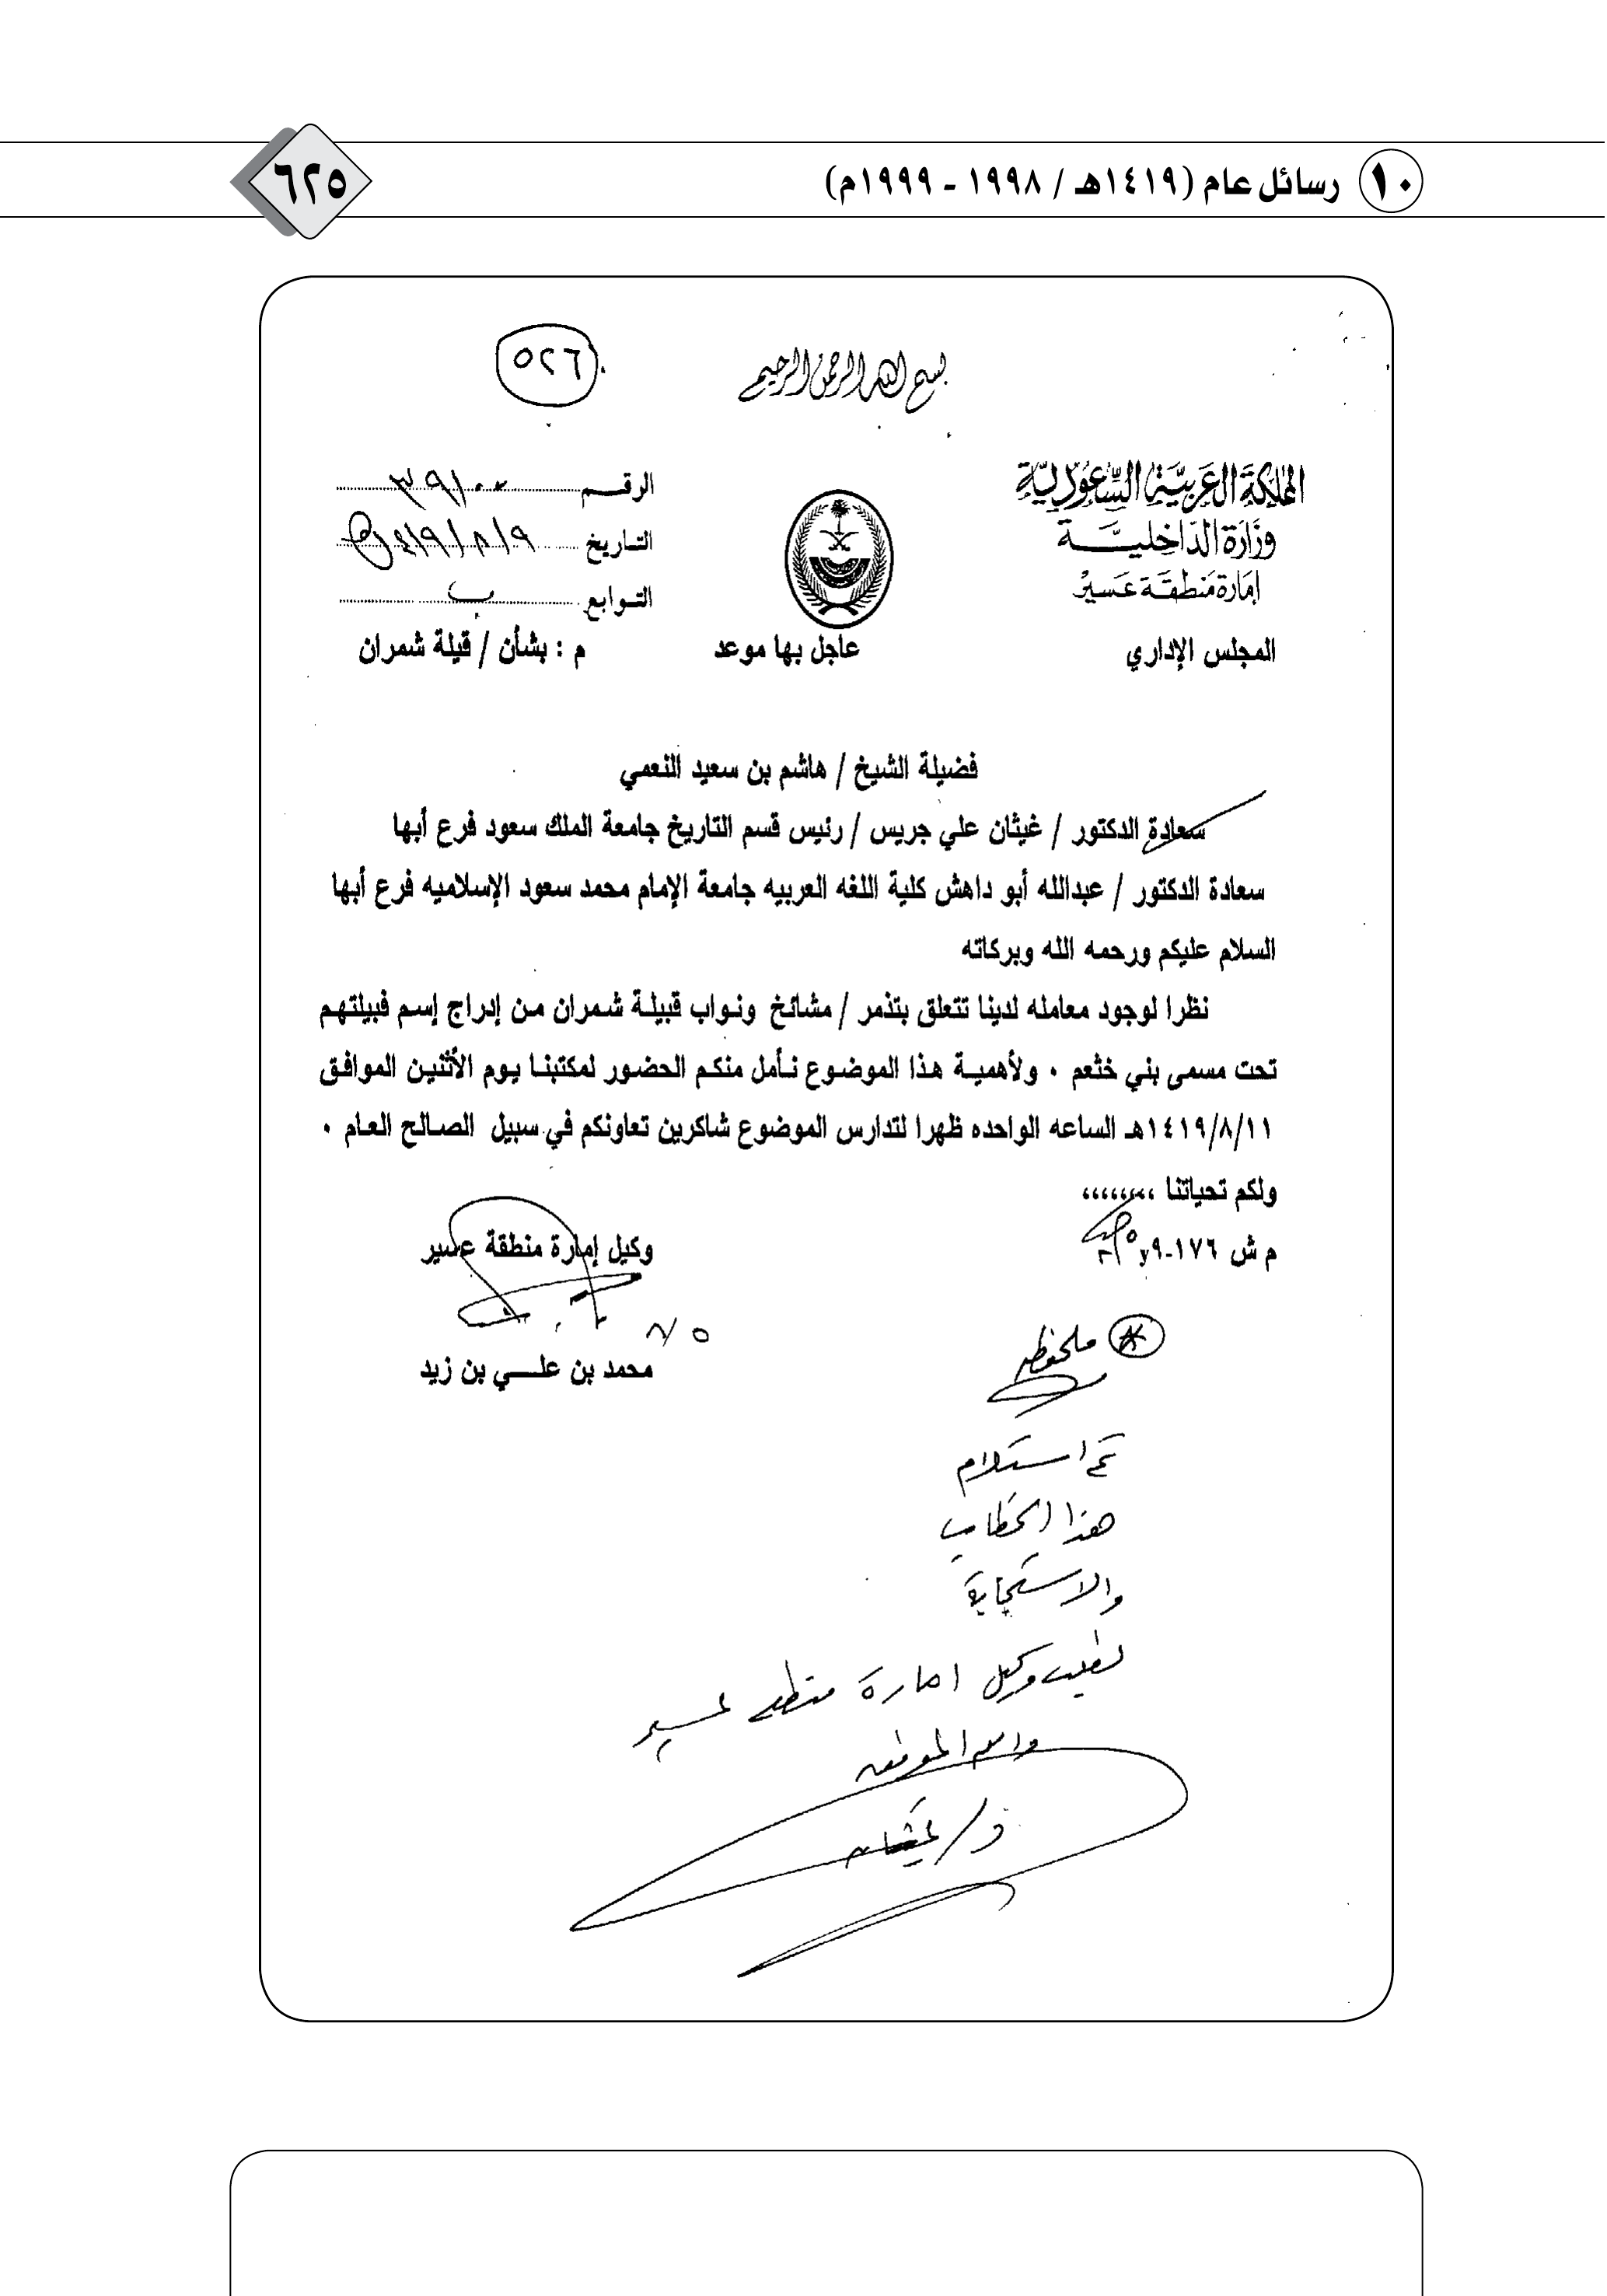 ١٠ رسائل عام (١٤١٩هـ / ١٩٩٨ - ١٩٩٩م)
٦٢٥
٥٢٦
بسم الله الرحمن الرحيم
المملكة العربية السعودية
وزارة الداخلية
إمارة منطقة عسير
المجلس الإداري
عاجل بها موعد
الرقم
التاريخ
التوابع
م : بشأن / قيلة شمران
فضيلة الشيخ / هاشم بن سعيد النعمي
سعادة الدكتور / غيثان علي جريس / رئيس قسم التاريخ جامعة الملك سعود فرع أبها
سعادة الدكتور / عبدالله أبو داهش كلية اللغه العربيه جامعة الإمام محمد سعود الإسلاميه فرع أبها
السلام عليكم ورحمه الله وبركاته
نظرا لوجود معامله لدينا تتعلق بتذمر / مشائخ ونواب قبيلة شمران من إدراج إسم قبيلتهم
تحت مسمى بني خثعم ٠ ولأهمية هذا الموضوع نأمل منكم الحضور لمكتبنا يوم الأثنين الموافق
١٤١٩/٨/١١هـ الساعه الواحده ظهرا لتدارس الموضوع شاكرين تعاونكم في سبيل الصالح العام ٠
ولكم تحياتنا ،،،،،،،،
م ش ١٧٦-٩y
وكيل إمارة منطقة عسير
٨/٥
محمد بن علي بن زيد
ملحوظه
تم استلام
هذا الخطاب
والاستجابة
لطلب وكيل امارة منطقة عسير
والله الموفق
د/ غيثان